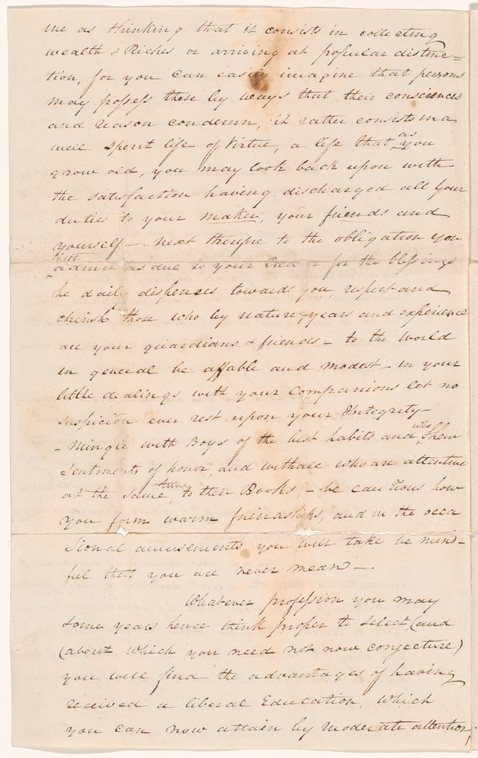 me as thinking that it consists in collecting
wealth & Riches or arriving at popular distinc-
tion, for you can easily imagine that persons
may possess these by ways that their consciences
and reason condemn, it rather consists in a
well spent life of Virtue, a life that as you
grow old, you may look back upon with
the satisfaction having discharged all your
duties to your maker, your friends and
yourself — next therefore to the obligation you
will admit as due to your for the blessings
he daily dispenses towards you, respect and
cherish those who by nature, years and experience
are your guardians & friends — to the World
in general be affable and modest — in your
little dealings with your Companions let no
suspicion ever rest upon your Integrity —
— Mingle with Boys of the best habits and who shew
Sentiments of honor and withall who are attentive
at the same time to their Books, — be cautious how
you form warm friendships, and in the occa
sional amusements you will take be mind-
ful that you are never mean —
Whatever profession you may
some years hence think proper to select (and
(about which you need not now conjecture)
you will find the advantages of having
received a liberal Education, which
you can now attain by moderate attention,